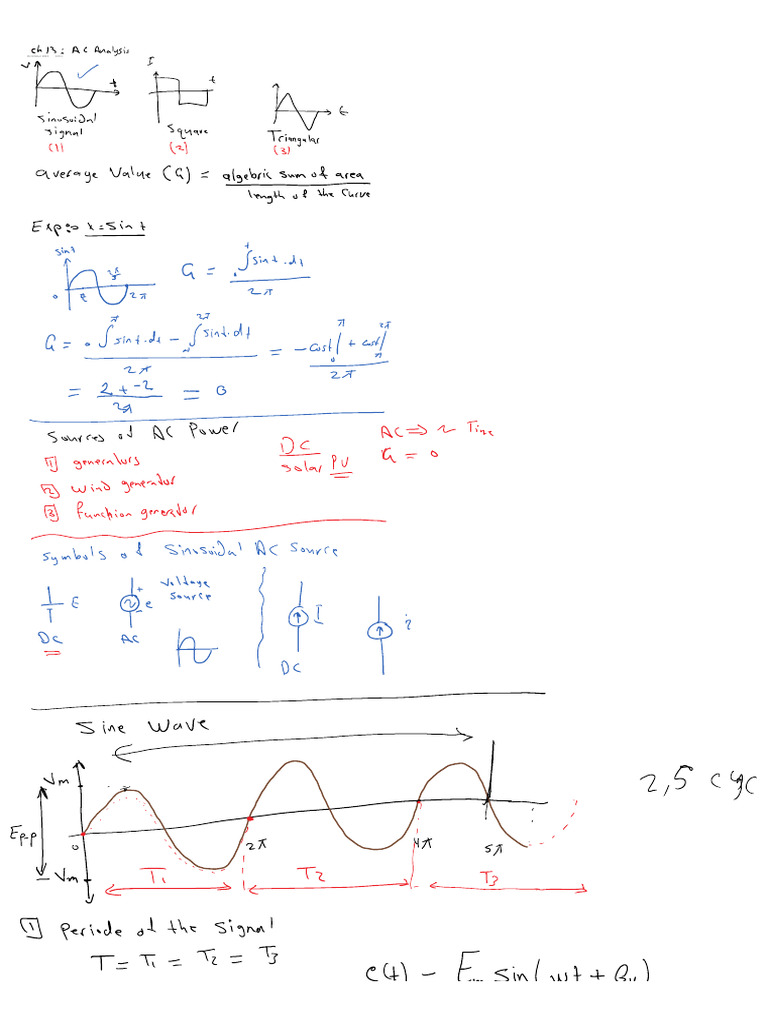 ch13: AC Analysis
V t I t t
Sinusoidal signal Square Triangular
(1) (2) (3)
average Value (G) = algebric sum of area / length of the Curve
Exp: x = sin t
sint
0 2π
G = ∫ sint.dt / 2π
G = 0∫π sint.dt - π∫2π sint.dt / 2π = -cost|π 0 + cost|2π π / 2π
= 2 + -2 / 2π = 0
Sources of AC Power
1 generators
2 wind generator
3 function generator
DC
solar PV
AC ⇒ ~
G = 0
Symbols of Sinusoidal AC Source
E e + - voltage source I i
DC AC DC
Sine Wave
Vm
Ep-p
0 2π 4π 5π
-Vm
T1 T2 T3
2,5 cyc
1 Periode of the signal
T = T1 = T2 = T3
e(t) - Em sin(wt + θv)